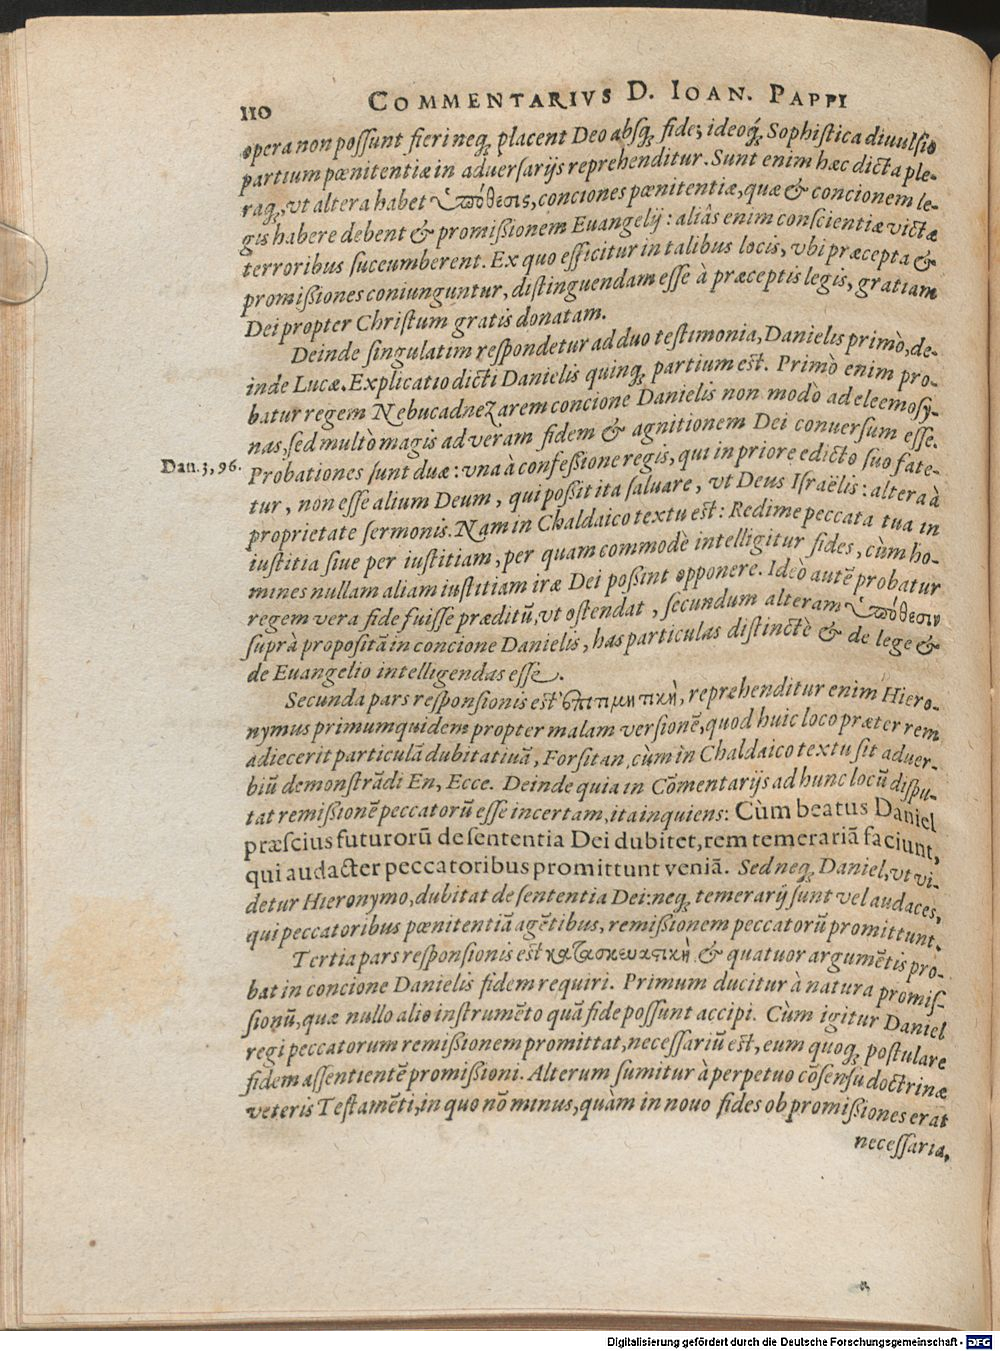 110 COMMENTARIVS D. IOAN. PAPPI
opera non possunt fieri neq; placent Deo absq; fide; ideoq́; Sophistica diuulsio
partium pœnitentiæ in aduersarijs reprehenditur. Sunt enim hæc dicta ple-
raq;, vt altera habet ὑπόθεσις, conciones pœnitentiæ, quæ & concionem le-
gis habere debent & promißionem Euangelij: aliâs enim conscientiæ victæ
terroribus succumberent. Ex quo efficitur in talibus locis, vbi præcepta &
promißiones coniunguntur, distinguendam esse à præceptis legis, gratiam
Dei propter Christum gratis donatam.
Deinde singulatim respondetur ad duo testimonia, Danielis primò, de-
inde Lucæ. Explicatio dicti Danielis quinq; partium est. Primò enim pro-
batur regem Nebucadnezarem concione Danielis non modò ad eleemosy-
nas, sed multò magis ad veram fidem & agnitionem Dei conuersum esse.
Dan. 3, 96. Probationes sunt duæ: vna à confeßione regis, qui in priore edicto suo fate-
tur, non esse alium Deum, qui poßit ita saluare, vt Deus Israëlis: altera à
proprietate sermonis. Nam in Chaldaico textu est: Redime peccata tua in
iustitia siue per iustitiam, per quam commodè intelligitur fides, cùm ho-
mines nullam aliam iustitiam iræ Dei poßint opponere. Ideò autē probatur
regem vera fide fuisse præditū, vt ostendat, secundum alteram ὑπόθεσιν
suprà propositā in concione Danielis, has particulas distinctè & de lege &
de Euangelio intelligendas esse.
Secunda pars responsionis est ἐπιτιμητικὴ, reprehenditur enim Hiero-
nymus primum quidem propter malam versionē, quod huic loco præter rem
adiecerit particulā dubitatiuā, Forsitan, cùm in Chaldaico textu sit aduer-
biū demonstrādi En, Ecce. Deinde quia in Cōmentarijs ad hunc locū dispu-
tat remißionē peccatorū esse incertam, ita inquiens: Cùm beatus Daniel
præscius futurorū de sententia Dei dubitet, rem temerariā faciunt,
qui audacter peccatoribus promittunt veniā. Sed neq; Daniel, vt vi-
detur Hieronymo, dubitat de sententia Dei: neq; temerarij sunt vel audaces,
qui peccatoribus pœnitentiā agētibus, remißionem peccatorū promittunt.
Tertia pars responsionis est κατασκευαστικὴ & quatuor argumētis pro-
bat in concione Danielis fidem requiri. Primum ducitur à natura promis-
sionū, quæ nullo alio instrumēto quā fide possunt accipi. Cùm igitur Daniel
regi peccatorum remißionem promittat, necessariū est, eum quoq; postulare
fidem assentientē promißioni. Alterum sumitur à perpetuo cōsensu doctrinæ
veteris Testamēti, in quo nō minus, quàm in nouo fides ob promißiones erat
necessaria,
Digitalisierung gefördert durch die Deutsche Forschungsgemeinschaft - DFG